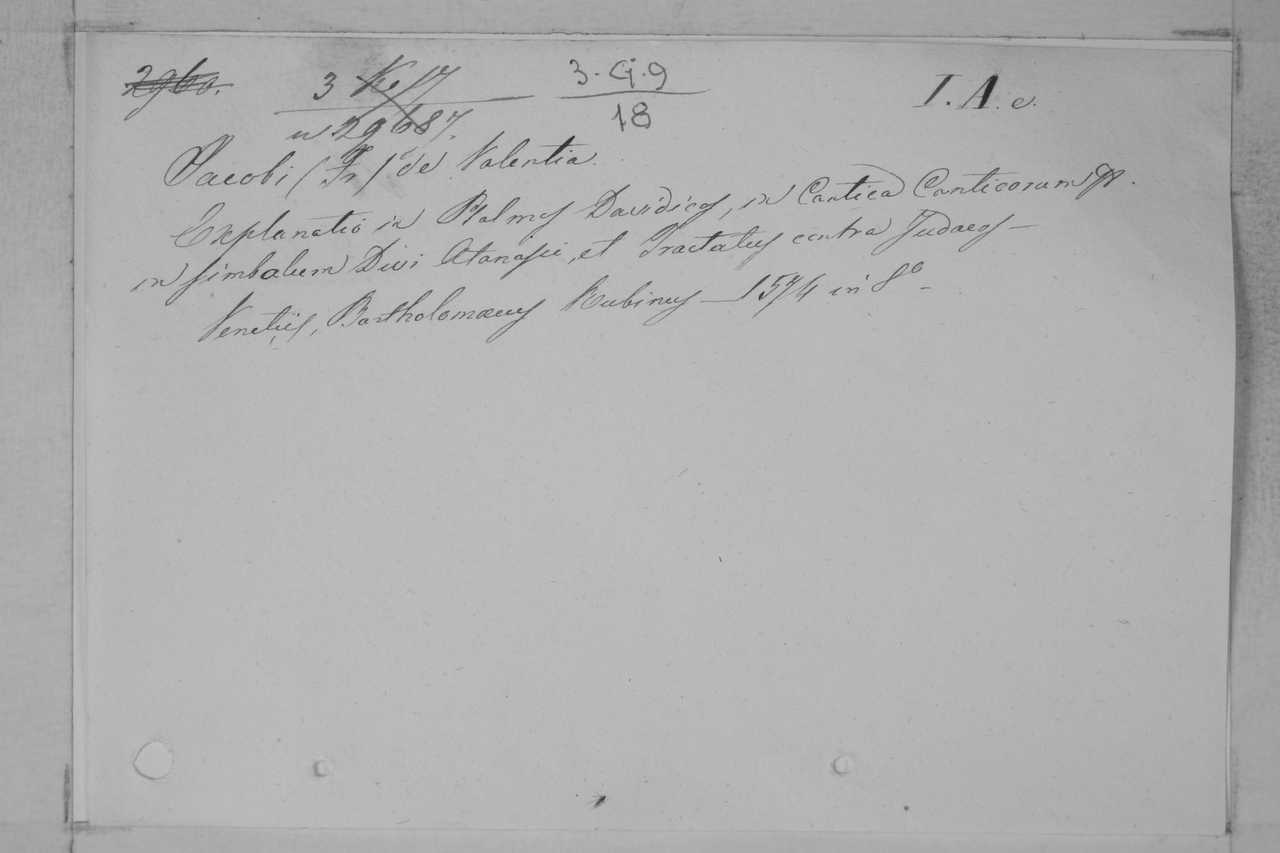 2960.
3 Ke 17
n 29687.
3. G. 9
18
I. A. c.
Jacobi (Fr) de Valentia.
Explanatio in Psalmos Davidicos, in Cantica Canticorum &.
in simbolum Divi Atanasii, et Tractatus contra Judaeos —
Venetiis, Bartholomaeus Rubinus — 1574 in 8º —